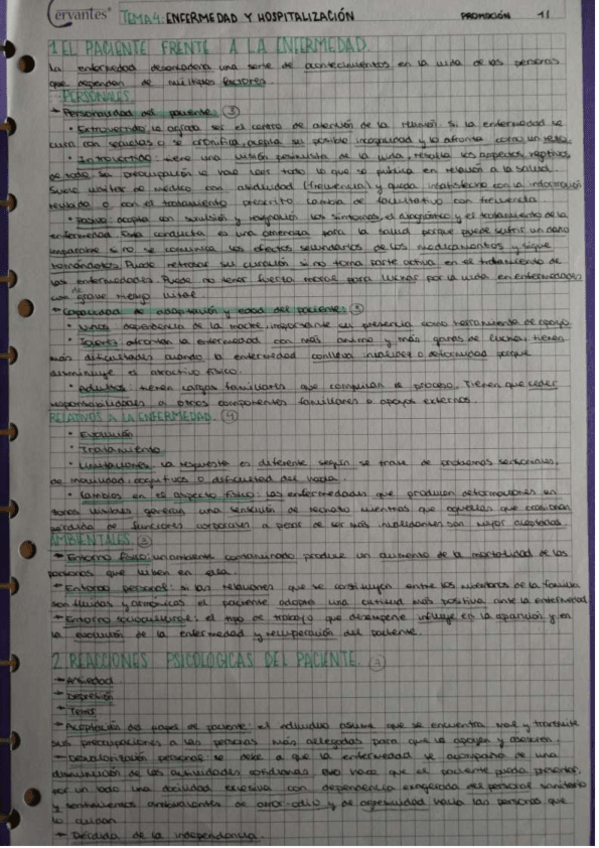 Cervantes TEMA 4: ENFERMEDAD Y HOSPITALIZACIÓN PROMOCIÓN 11
1. EL PACIENTE FRENTE A LA ENFERMEDAD.
La enfermedad desencadena una serie de acontecimientos en la vida de las personas
que dependen de múltiples factores.
PERSONALES
Personalidad del paciente: 3
• Extrovertido: le agrada ser el centro de atención de la reunión. Si la enfermedad se
cura con secuelas o se cronifica, acepta su posible incapacidad y lo afronta como un reto.
• Introvertido: tiene una visión pesimista de la vida, resalta los aspectos negativos
de todo. Su preocupación le hace leer todo lo que se publica en relación a la salud.
Suele visitar al médico con asiduidad (frecuencia) y queda insatisfecho con la información
recibida o con el tratamiento prescrito. Cambia de facultativo con frecuencia
• Pasivo: acepta con sumisión y resignación los síntomas, el diagnóstico y el tratamiento de la
enfermedad. Esta conducta es una amenaza para la salud porque puede sufrir un daño
irreparable si no se comunica los efectos secundarios de los medicamentos y sigue
tomándolos. Puede retrasar su curación si no toma parte activa en el tratamiento de
las enfermedades. Puede no tener fuerza moral para luchar por la vida en enfermedades
con grave riesgo vital
Capacidad de adaptación y edad del paciente: 3
• Niños: dependencia de la madre, importante su presencia como herramienta de apoyo
• Joven: afrontan la enfermedad con más ánimo y más ganas de luchar, tienen
más dificultades cuando la enfermedad conlleva invalidez o deformidad porque
disminuye el atractivo físico.
• Adultos: tienen cargas familiares que complican el proceso. Tienen que ceder
responsabilidades a otros componentes familiares o apoyos externos.
RELATIVOS A LA ENFERMEDAD. 4
• Evolución
• Tratamiento
• Limitaciones: la respuesta es diferente según se trate de problemas sensoriales,
de movilidad, cognitivos o dificultad del habla.
• Cambios en el aspecto físico: las enfermedades que producen deformaciones en
zonas visibles generan una sensación de rechazo mientras que aquellas que ocasionan
pérdida de funciones corporales a pesar de ser más invalidantes son mejor aceptadas.
AMBIENTALES. 3
Entorno físico: un ambiente contaminado produce un aumento de la mortalidad de las
personas que viven en ella.
Entorno personal: si las relaciones que se constituyen entre los miembros de la familia
son fluidas y armónicas el paciente adopta una actitud más positiva ante la enfermedad
Entorno sociocultural: el tipo de trabajo que desempeñe influye en la aparición y en
la evolución de la enfermedad y recuperación del paciente.
2. REACCIONES PSICOLOGICAS DEL PACIENTE.
Ansiedad
Depresión
Temor
Aceptación del papel de paciente: el individuo asume que se encuentra mal y transmite
sus preocupaciones a las personas más allegadas para que lo apoyen y
Desvalorización personal: se debe a que la enfermedad se acompaña de una
disminución de las actividades cotidianas. Eso hace que el paciente pueda presentar,
por un lado una docilidad excesiva con dependencia exagerada del personal sanitario
y sentimientos ambivalentes de amor-odio y de agresividad hacia las personas que
lo cuidan
Pérdida de la independencia.